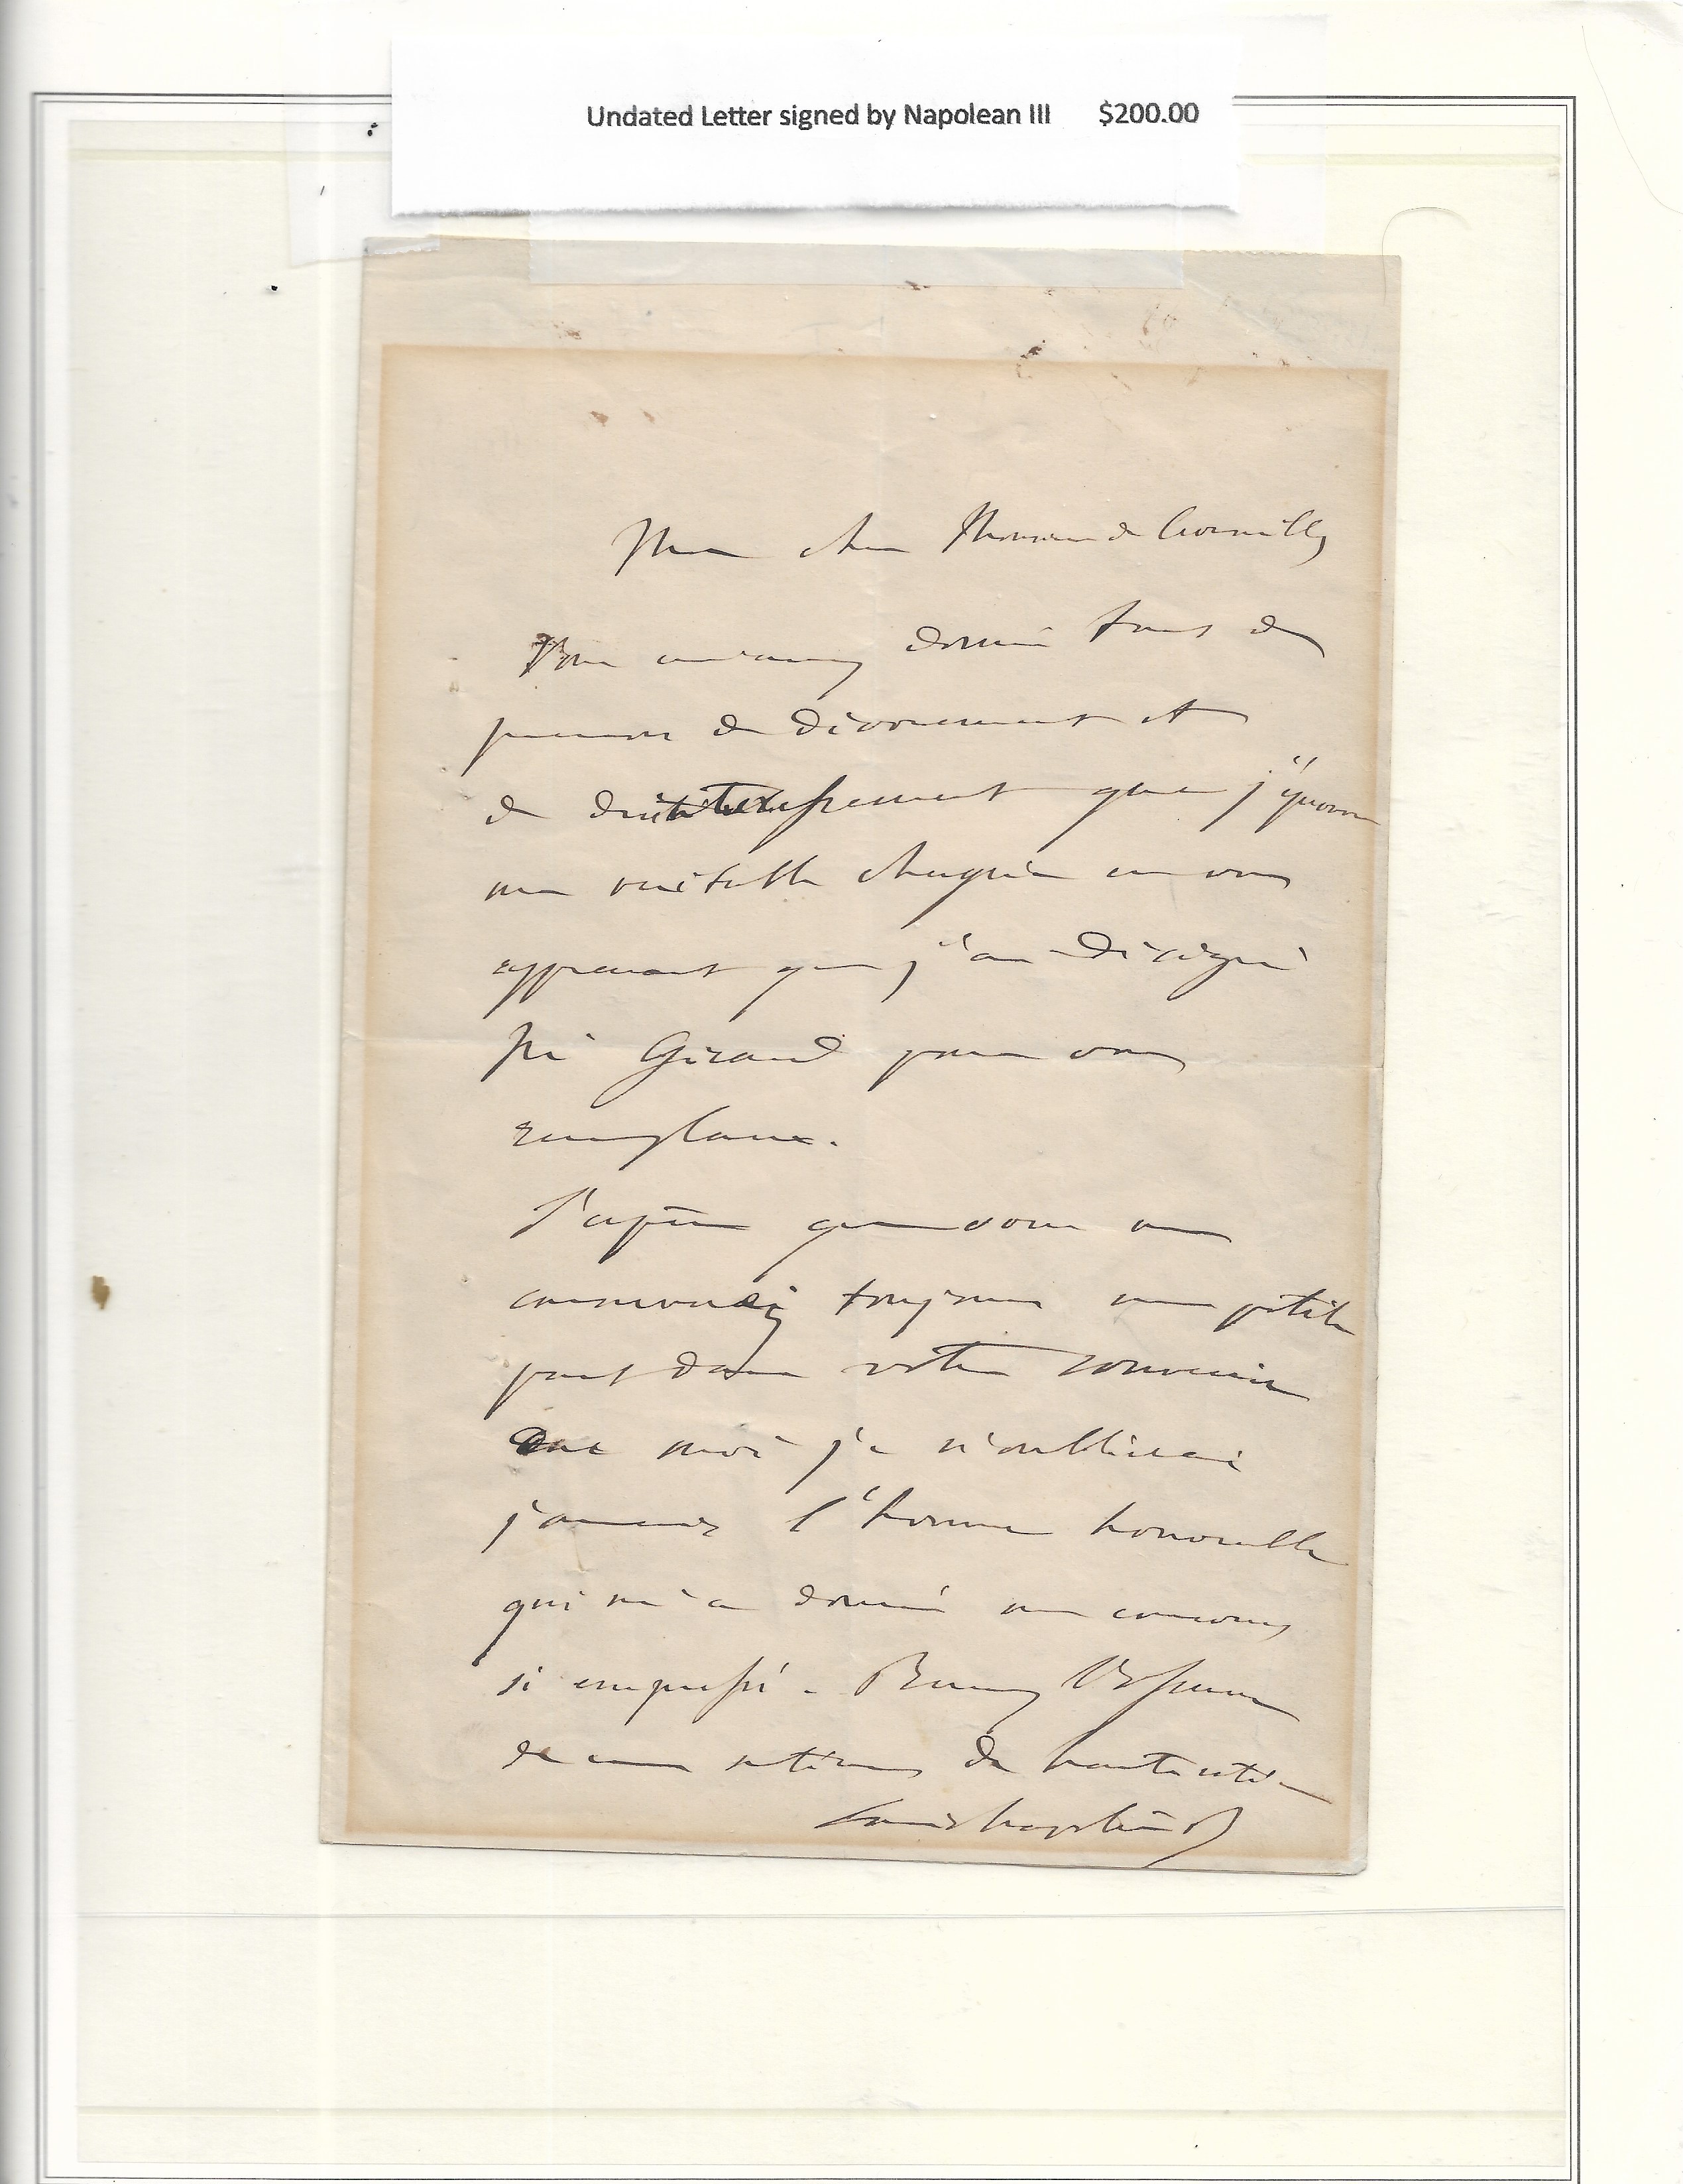 Undated Letter signed by Napolean III $200.00
Mon cher Monsieur de
Vous m'avez donné tant de
preuves de dévouement et
de désintéressement que j'éprouve
un véritable chagrin en vous
apprenant que j'ai désigné
Mr Giraud pour vous
remplacer.
J'espère que vous me
conserverez toujours une petite
part dans votre souvenir
moi je n'oublierai
jamais l'homme honorable
qui m'a donné un concours
si empressé. Recevez l'assurance
de mes sentimens de haute estime
Louis Napoléon B